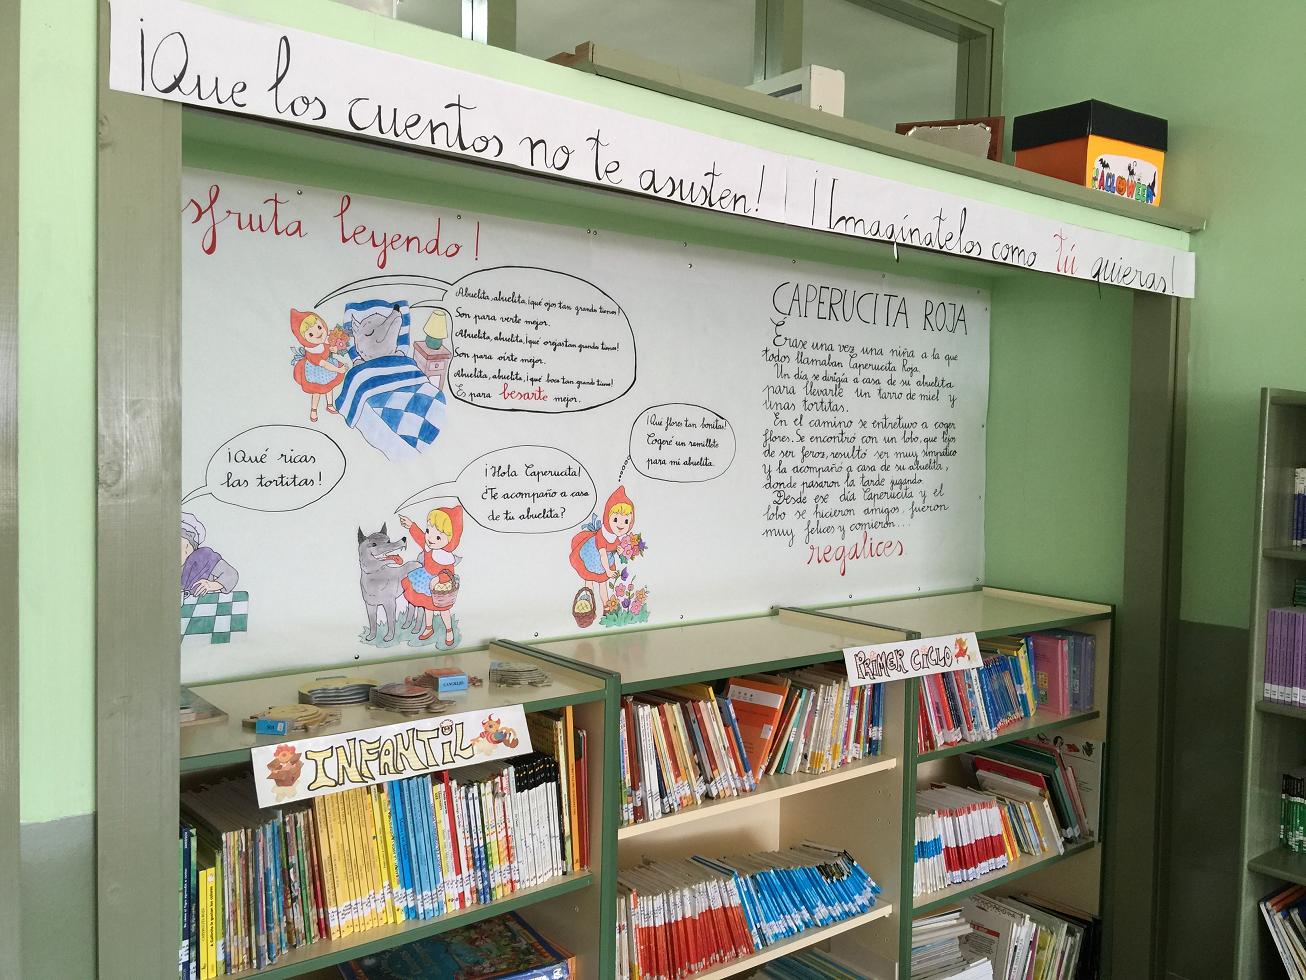 ¡Que los cuentos no te asusten! ¡Imagínatelos como tú quieras!
HALLOWEEN
sfruta leyendo!
Abuelita, abuelita, ¡qué ojos tan grandes tienes!
Son para verte mejor.
Abuelita, abuelita, ¡qué orejas tan grandes tienes!
Son para oírte mejor.
Abuelita, abuelita, ¡qué boca tan grande tienes!
Es para besarte mejor.
¡Qué ricas
las tortitas!
¡Hola Caperucita!
¿Te acompaño a casa
de tu abuelita?
¡Qué flores tan bonitas!
Cogeré un ramillete
para mi abuelita.
CAPERUCITA ROJA
Érase una vez una niña a la que
todos llamaban Caperucita Roja.
Un día se dirigía a casa de su abuelita
para llevarle un tarro de miel y
unas tortitas.
En el camino se entretuvo a coger
flores. Se encontró con un lobo, que lejos
de ser feroz, resultó ser muy simpático
y la acompañó a casa de su abuelita,
donde pasaron la tarde jugando.
Desde ese día Caperucita y el
lobo se hicieron amigos, fueron
muy felices y comieron...
regalices.
INFANTIL
PRIMER CICLO